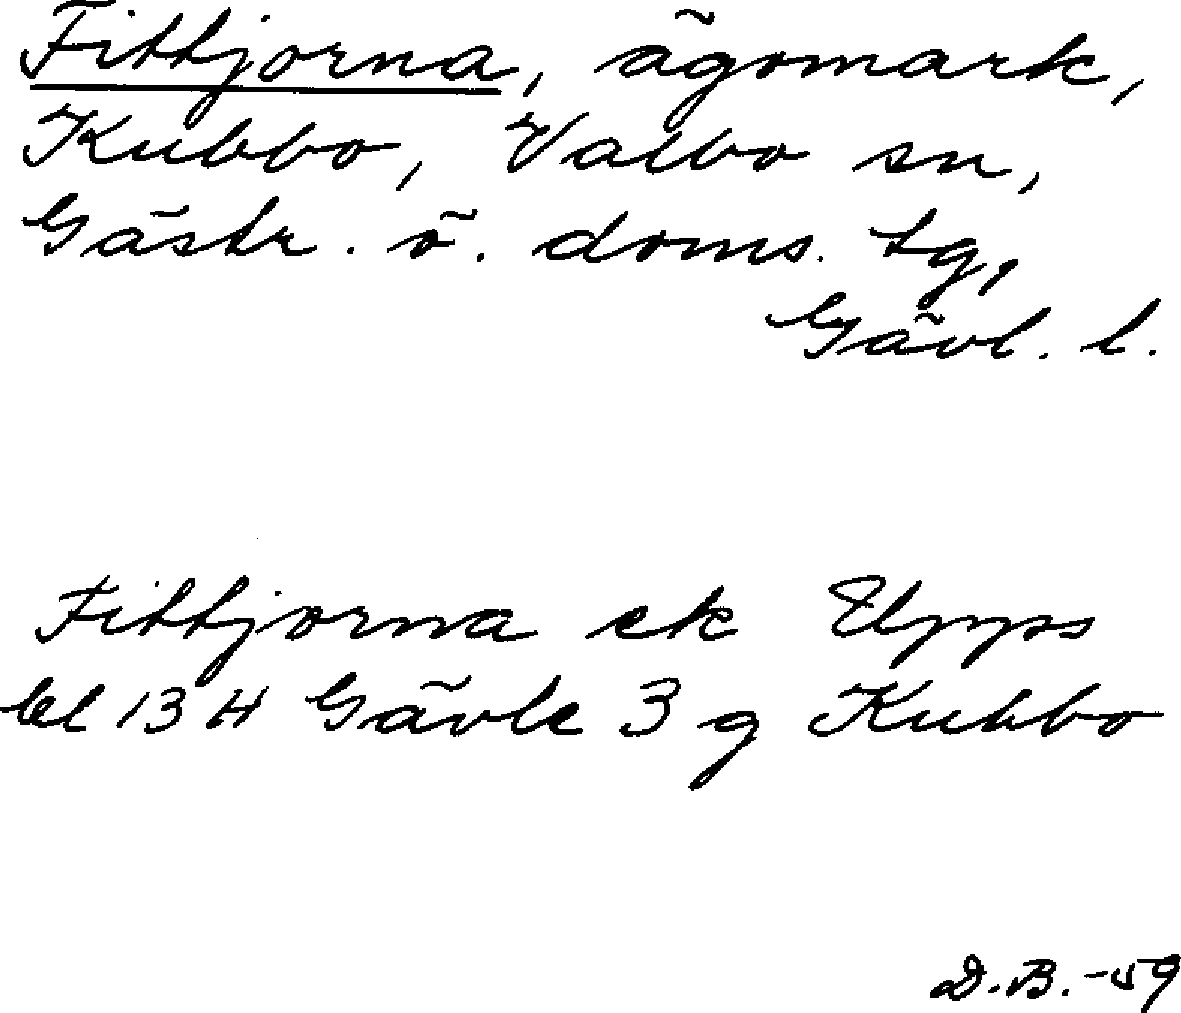 Fittjorna, ägomark,
Kubbo, Valbo sn,
Gästr. ö. doms. tg,
Gävl. l.
Fittjorna ek Upps
bl 13 H Gävle 3 g Kubbo
D.B. -59